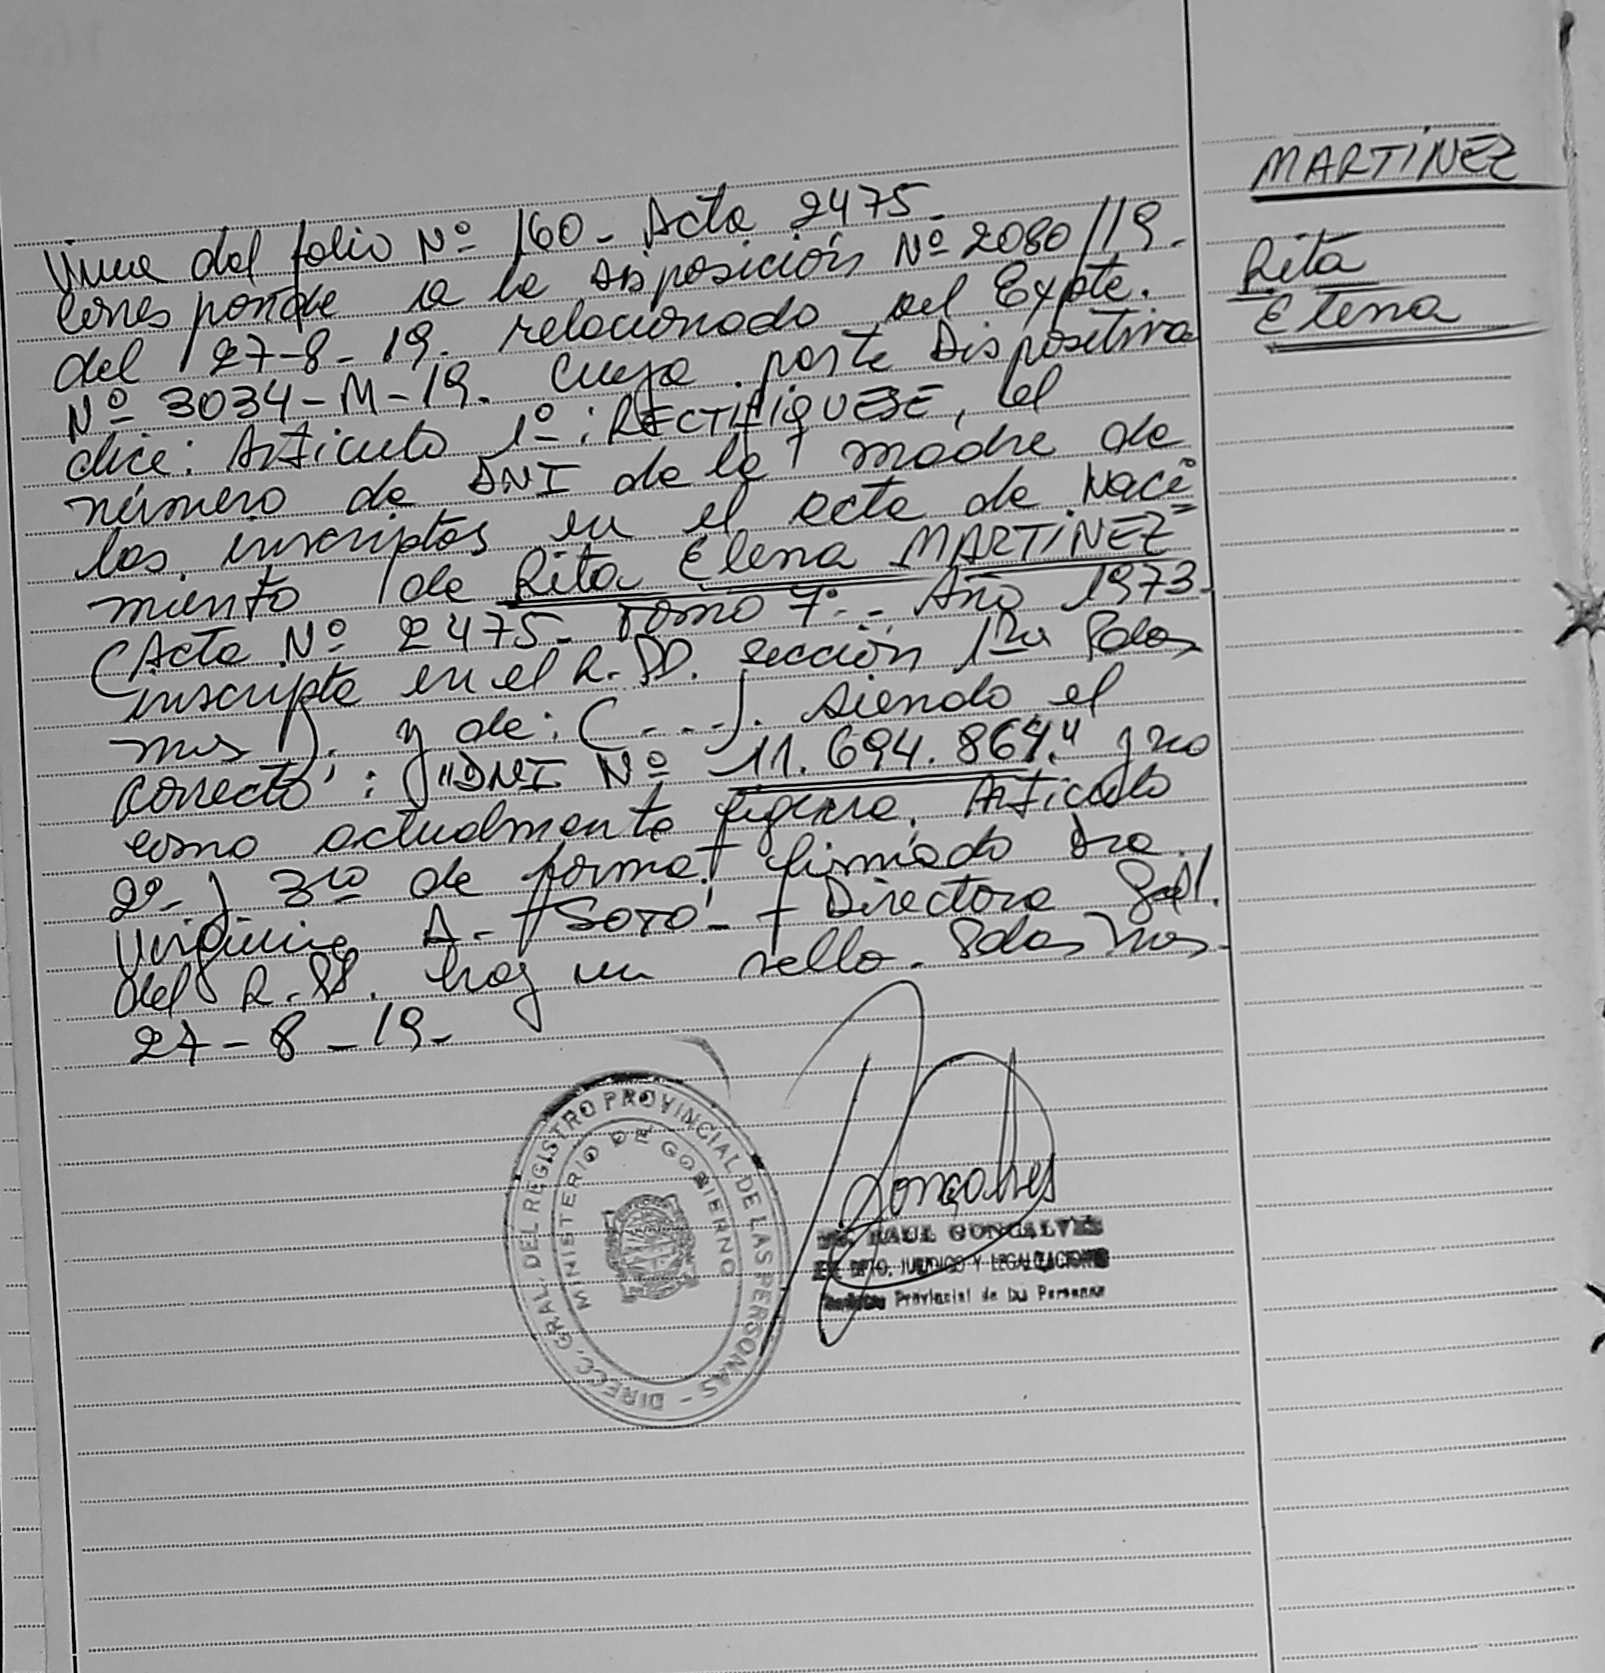 Viene del folio Nº 160- Acta 2475-
Corresponde a la Disposición Nº 2080/19-
del 27-8-19. relacionado al Expte.
Nº 3034-M-19. cuya parte Dispositiva
dice: Artículo 1º: RECTIFIQUESE, el
número de DNI de la madre de
los inscriptos en el acta de Naci=
miento de Rita Elena MARTINEZ
(Acta Nº 2475- Tomo 7º- Año 1973-
inscripta en el R.PP. sección 1ra Posa
mos
). y de: (...). Siendo el
correcto: "DNI Nº 11.694.864." y no
como actualmente figura. Artículo
2º- y 3ro de forma. firmado Dra.
Virginia A. SOTO- Directora Gral.
del R.PP. hay un sello. Posas Mnes-
27-8-19-
MARTINEZ
Rita
Elena
DIREC. GRAL. DEL REGISTRO PROVINCIAL DE LAS PERSONAS -
MINISTERIO DE GOBIERNO
Goncalves
RAUL GONCALVES
DPTO. JURIDICO Y LEGALIZACIONES
Provincial de las Personas